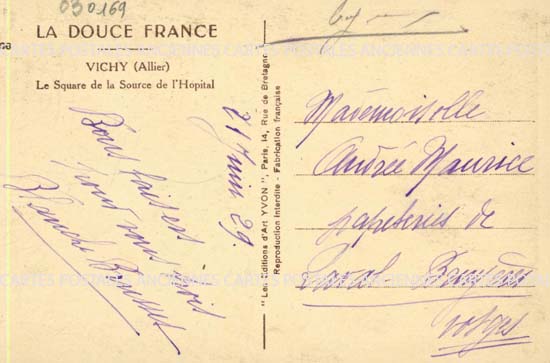 030169
LA DOUCE FRANCE
VICHY (Allier)
Le Square de la Source de l'Hopital
21 Juin 29.
Bons baisers
pour vous trois
Blanche
"Les Editions d'Art YVON", Paris, 14, Rue de Bretagne
Reproduction Interdite - Fabrication française
Mademoiselle
Andrée Maurice
papeteries de
Laval
Vosges
CARTES POSTALES ANCIENNES CARTES POSTALES
CARTES POSTALES ANCIENNES CARTES POSTALES